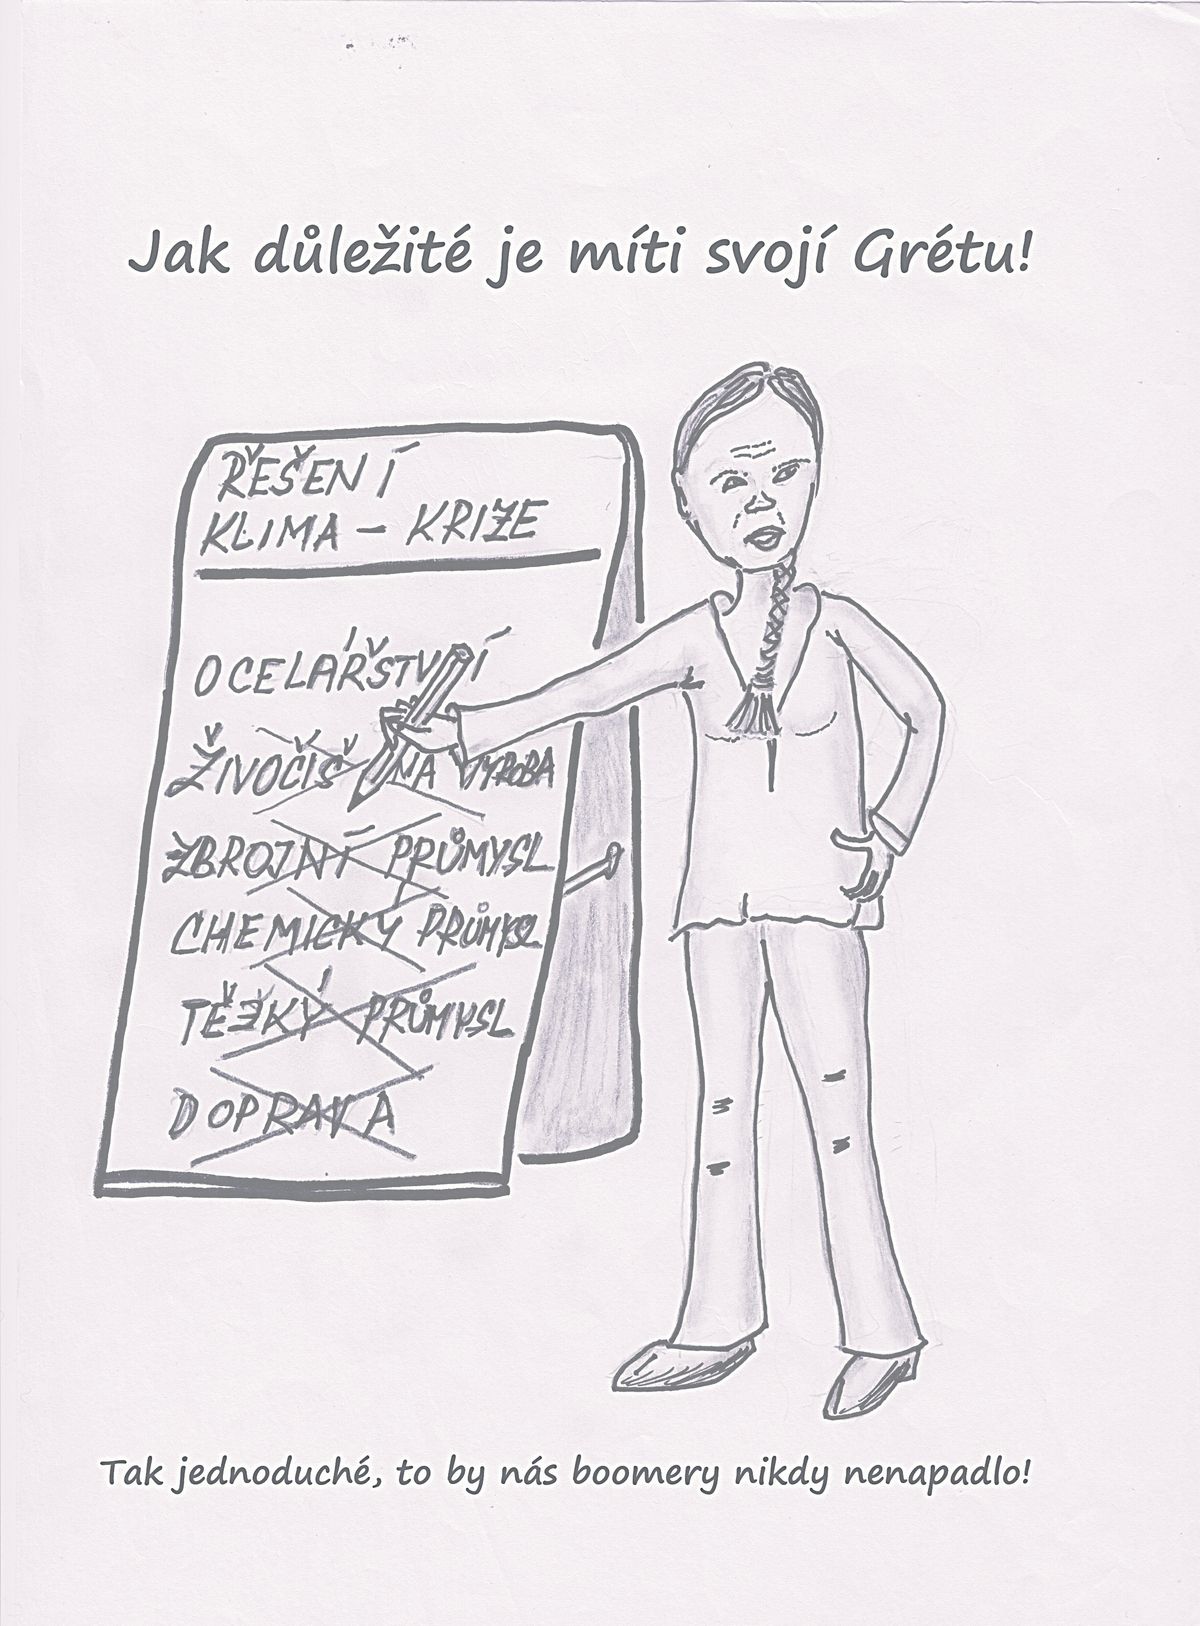 Jak důležité je míti svojí Grétu!
ŘEŠENÍ
KLIMA - KRIZE
OCELÁŘSTVÍ
ŽIVOČIŠ NA VÝROBA
ZBROJNÍ PRŮMYSL
CHEMICKÝ PRŮMYSL
TĚŽKÝ PRŮMYSL
DOPRAVA
Tak jednoduché, to by nás boomery nikdy nenapadlo!